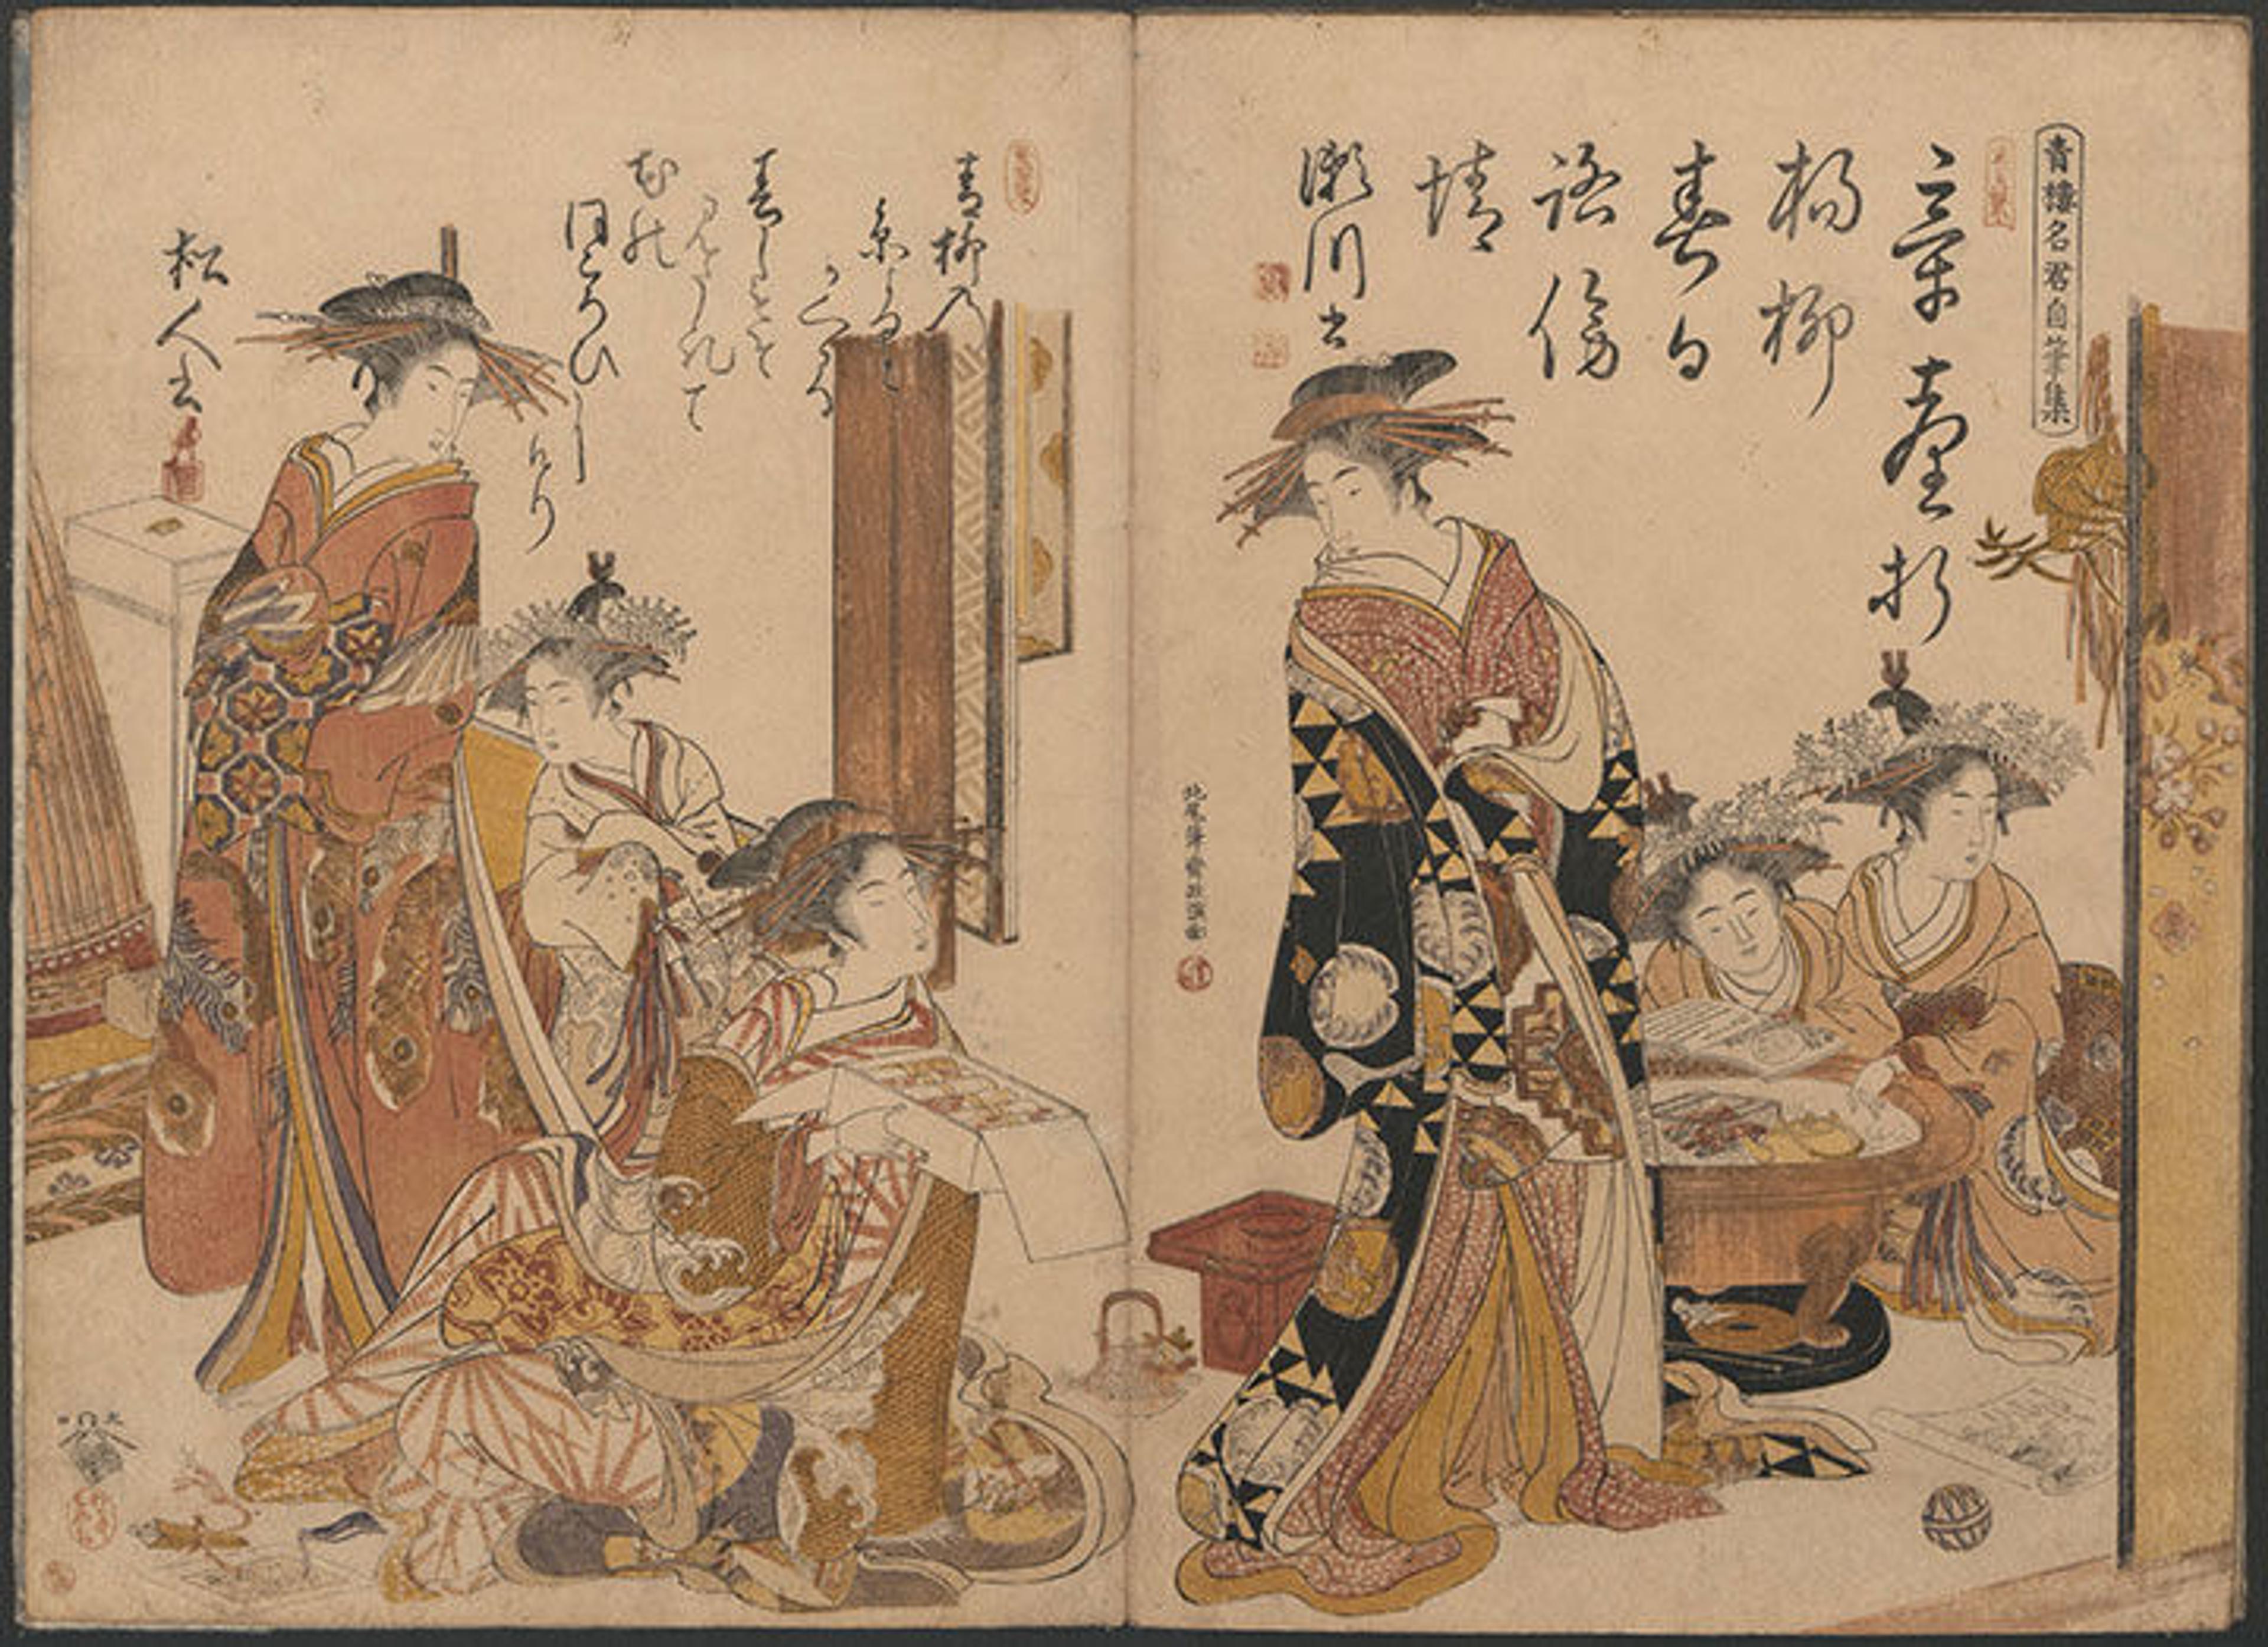 青樓名君自筆集
章臺折
楊柳
春日
路傍
情
瀬川書
北尾葎斎政演画
青柳乃
糸より
かくる
春しもそ
みたれて
花の
ほころひに
けり
松人書